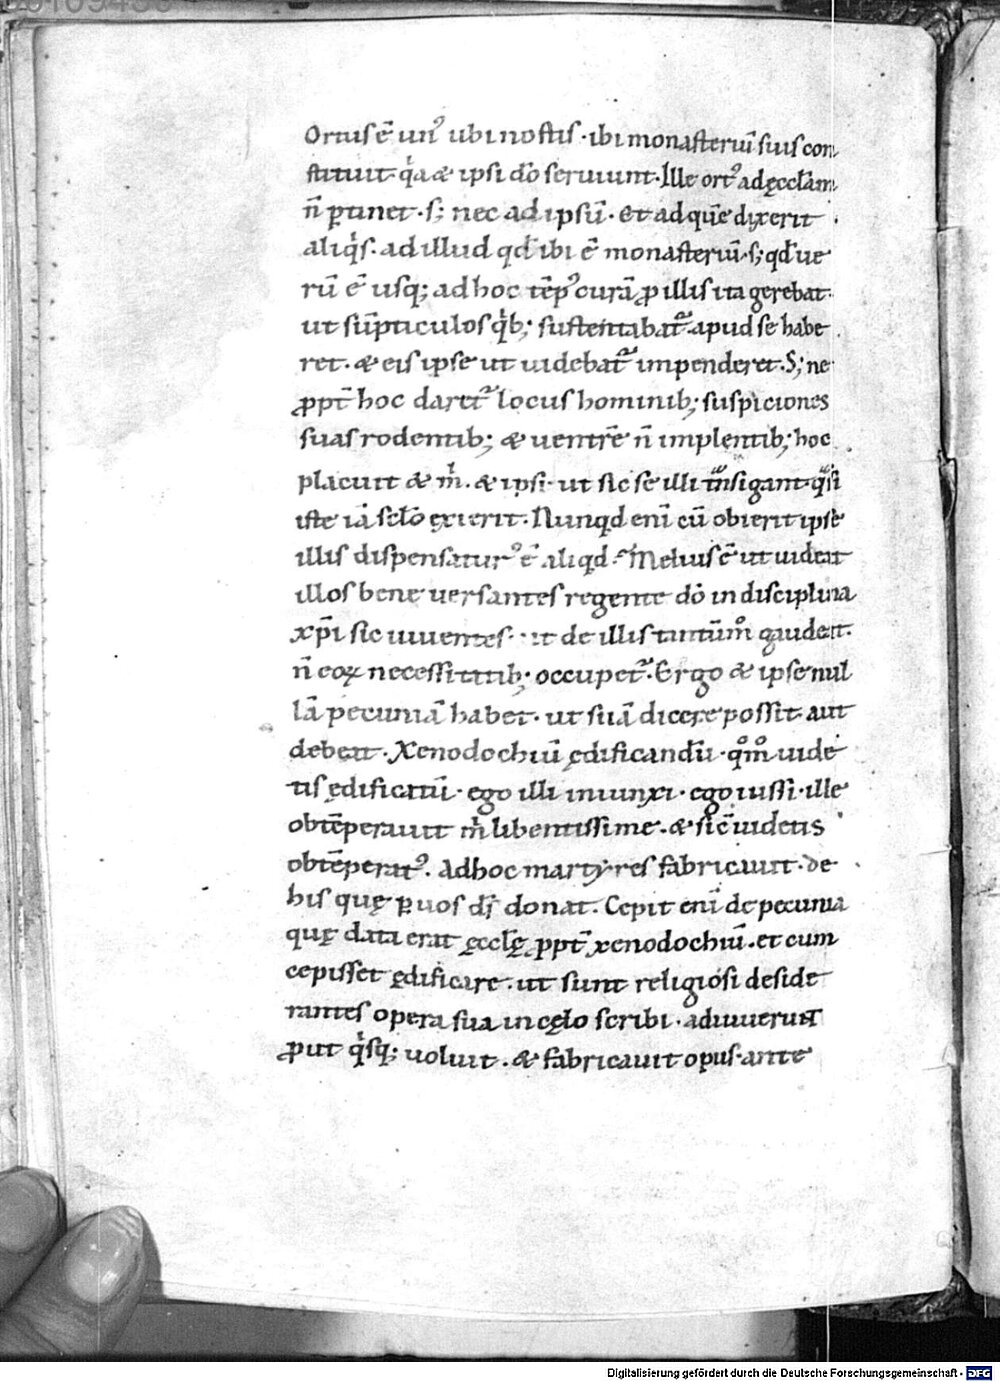 Ortus ē un᷒ ubi nostis · ibi monasteriū suis con
stituit · qͥa & ipsi dō seruiunt · Ille ort᷒ ad ęccl̄am
n̄ ꝑtinet · s; nec ad ipsū · Et ad quē dixerit
aliqͥs · ad illud qd̄ ibi ē monasteriū · s; qd̄ ue
rū ē usq; ad hoc tēp᷒ curā ꝓ illis ita gerebat ·
ut sūpticulos qͥb; sustentabat᷑ apud se habe
ret · & eis ipse ut uidebat᷑ impenderet · S; ne
ꝓpt̄ hoc daret᷑ locus hominib; suspiciones
suas rodentib; & uentrē n̄ implentib; hoc
placuit & m̄ · & ipsi · ut sic se illi transigant qͣsi
iste iā sc̄lo exierit · Nunqd enī cū obierit ipse
illis dispensatur᷒ ē aliqd · Melius ē ut uideat
illos bene uersantes regente dō in disciplina
xp̄i sic uiuentes · ut de illis tantūmͦ gaudeat ·
n̄ eoꝝ necessitatib; occupet᷑ · Ergo & ipse nul
lā pecuniā habet · ut suā dicere possit aut
debeat · Xenodochiū ędificandū · qͦmͦ uide
tis ędificatū · ego illi iniunxi · ego iussi · ille
obtēperauit m̄ libentissime · & sic̄ uidetis
obtēperat᷒ · Adhoc martyres fabricauit · de
his quę ꝑ uos ds̄ donat · Cepit enī de pecunia
quę data erat ęccl̄ę ꝓpt̄ xenodochiū · et cum
cepisset ędificare · ut sunt religiosi deside
rantes opera sua in cęlo scribi · adiuuerunt
ꝓut qͥsq; uoluit · & fabricauit opus · ante
Digitalisierung gefördert durch die Deutsche Forschungsgemeinschaft - DFG